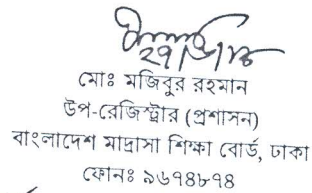 মোঃ মজিবুর রহমান
উপ-রেজিস্ট্রার (প্রশাসন)
বাংলাদেশ মাদ্রাসা শিক্ষা বোর্ড, ঢাকা
ফোনঃ ৯৬৭৪৮৭৪